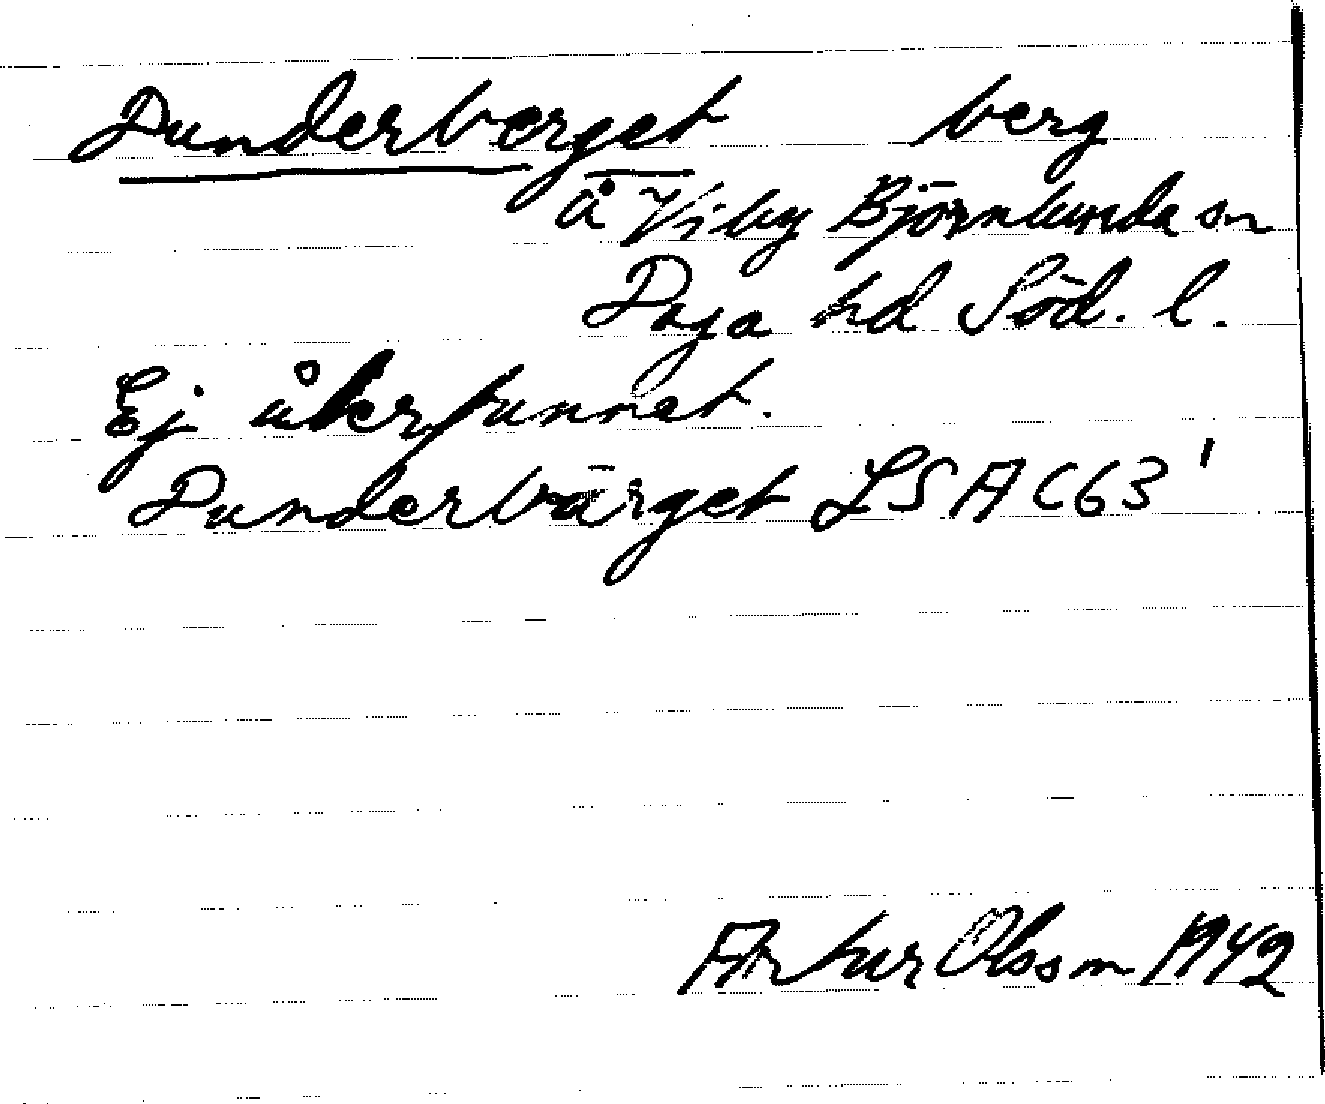 Dunderberget berg
å Viby Björnlunda sn
Daga hd Söd. l.
Ej återfunnet.
Dunderbärget LSA C63'
Artur Olsson 1942